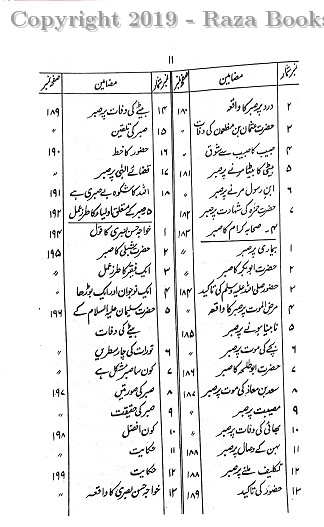 Copyright 2019 - Raza Books
۱۱
نمبر شمار مضامین صفحہ نمبر
۲ درد پر صبر کا واقعہ ۱۸۰
۳ حضرت عثمان بن مظعون کی وفات 〃
۴ حبیب کا حبیب سے شوق 〃
۵ بیٹی کا بیٹا ہونے پر صبر ۱۸۱
۶ ابن رسول مرنے پر صبر 〃
۷ حضرت حمزہ کی شہادت پر صبر ۱۸۲
۴۔ صحابہ کرام کا صبر
۱ بیماری پر صبر ۱۸۳
۲ حضرت ابوبکر کا صبر 〃
۳ حضور صلی اللہ علیہ وسلم کی تاکید ۱۸۴
۴ مرض الموت پر صبر کا واقعہ 〃
۵ نابینا ہونے پر صبر ۱۸۵
۶ بچے کی موت پر صبر 〃
۷ حضرت ابوطلحہ کا صبر ۱۸۶
۸ سعد بن معاذ کی موت پر صبر ۱۸۷
۹ مصیبت پر صبر 〃
۱۰ بھائی کی وفات پر صبر 〃
۱۱ بہن کے وصال پر صبر ۱۸۸
۱۲ تکلیف ملنے پر صبر ۱۸۸
۱۳ حضور کی تاکید ۱۸۹
نمبر شمار مضامین صفحہ نمبر
۱۴ بیٹے کی وفات پر صبر ۱۸۹
۱۵ صبر کی تلقین 〃
۱۶ حضور کا خط ۱۹۰
۱۷ قضائے الٰہی پر صبر 〃
۱۸ اللہ کا شکوہ بے صبری ہے ۱۹۱
۵ صبر کے متعلق اولیاء کا طرز عمل ۱۹۲
۱ خواجہ حسن بصری کا قول ۱۹۴
۲ حضرت شبلی کا صبر ۱۹۵
۳ ایک فقیر کا طرز عمل 〃
۴ ایک نوجوان اور ایک بوڑھا 〃
۵ حضرت سلیمان علیہ السلام کے ۱۹۶
بیٹے کی وفات
۶ تورات کی چار سطریں 〃
۷ کون سا صبر مشکل ہے 〃
۸ صبر کی صورتیں ۱۹۷
۹ صبر کی حقیقت 〃
۱۰ کون افضل ۱۹۸
۱۱ حکایت 〃
۱۲ حکایت ۱۹۹
۱۳ خواجہ حسن بصری کا واقعہ 〃